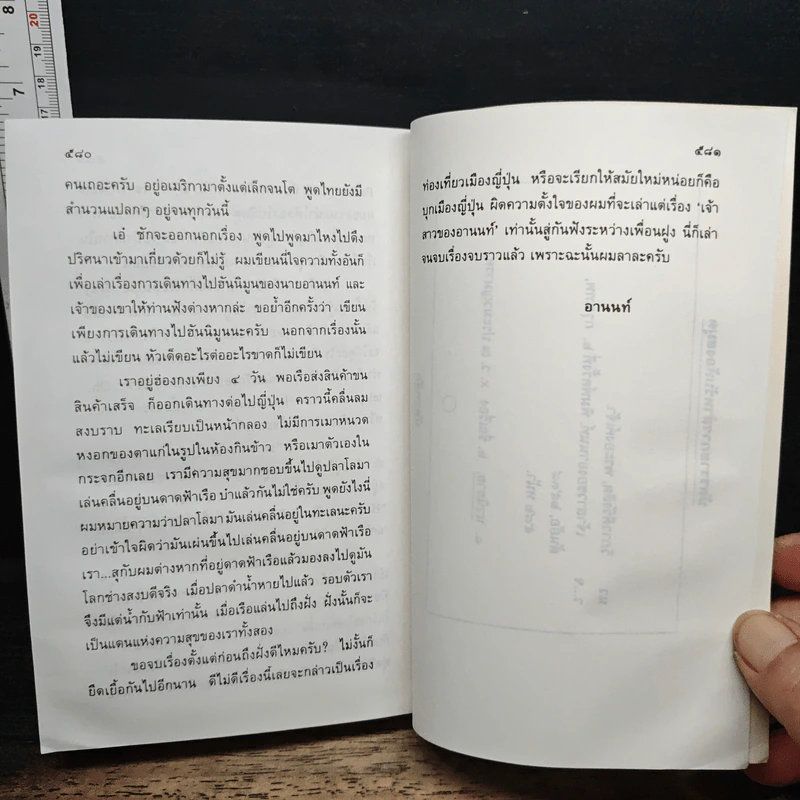 ๕๘๐
คนเถอะครับ อยู่อเมริกามาตั้งแต่เล็กจนโต พูดไทยยังมี
สำนวนแปลกๆ อยู่จนทุกวันนี้
เอ๋ ชักจะออกนอกเรื่อง พูดไปพูดมาไหงไปดึง
ปริศนาเข้ามาเกี่ยวด้วยก็ไม่รู้ ผมเขียนนี่ใจความทั้งอันก็
เพื่อเล่าเรื่องการเดินทางไปฮันนิมูนของนายอานนท์ และ
เจ้าของเขาให้ท่านฟังต่างหากล่ะ ขอย้ำอีกครั้งว่า เขียน
เพียงการเดินทางไปฮันนิมูนนะครับ นอกจากเรื่องนั้น
แล้วไม่เขียน หัวเด็ดอะไรต่ออะไรขาดก็ไม่เขียน
เราอยู่ฮ่องกงเพียง ๔ วัน พอเรือส่งสินค้าขน
สินค้าเสร็จ ก็ออกเดินทางต่อไปญี่ปุ่น คราวนี้คลื่นลม
สงบราบ ทะเลเรียบเป็นหน้ากลอง ไม่มีการเมาหนวด
หงอกของตาแก่ในรูปในห้องกินข้าว หรือเมาตัวเองใน
กระจกอีกเลย เรามีความสุขมากชอบขึ้นไปดูปลาโลมา
เล่นคลื่นอยู่บนดาดฟ้าเรือ บ๊ำแล้วกันไม่ใช่ครับ พูดยังไงนี่
ผมหมายความว่าปลาโลมา มันเล่นคลื่นอยู่ในทะเลนะครับ
อย่าเข้าใจผิดว่ามันเผ่นขึ้นไปเล่นคลื่นอยู่บนดาดฟ้าเรือ
เรา...สุกับผมต่างหากที่อยู่ดาดฟ้าเรือแล้วมองลงไปดูมัน
โลกช่างสงบดีจริง เมื่อปลาดำน้ำหายไปแล้ว รอบตัวเรา
จึงมีแต่น้ำกับฟ้าเท่านั้น เมื่อเรือแล่นไปถึงฝั่ง ฝั่งนั้นก็จะ
เป็นแดนแห่งความสุขของเราทั้งสอง
ขอจบเรื่องตั้งแต่ก่อนถึงฝั่งดีไหมครับ? ไม่งั้นก็
ยืดเยื้อกันไปอีกนาน ดีไม่ดีเรื่องนี้เลยจะกล่าวเป็นเรื่อง
๕๘๑
ท่องเที่ยวเมืองญี่ปุ่น หรือจะเรียกให้สมัยใหม่หน่อยก็คือ
บุกเมืองญี่ปุ่น ผิดความตั้งใจของผมที่จะเล่าแต่เรื่อง ‘เจ้า
สาวของอานนท์’ เท่านั้นสู่กันฟังระหว่างเพื่อนฝูง นี่ก็เล่า
จนจบเรื่องจบราวแล้ว เพราะฉะนั้นผมลาละครับ
อานนท์
8
7
20
19
18
17